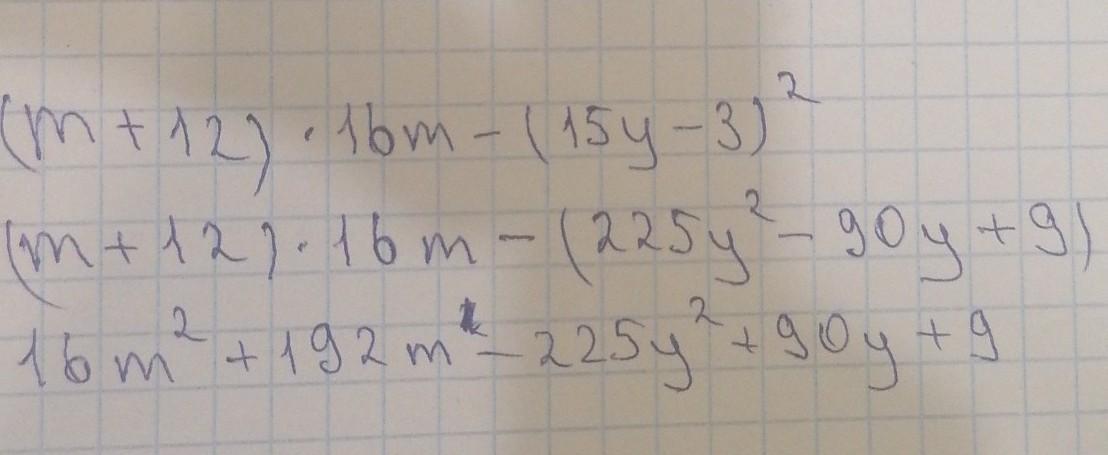 (m + 12) · 16m - (15y - 3)²
(m + 12) · 16m - (225y² - 90y + 9)
16m² + 192m - 225y² + 90y + 9